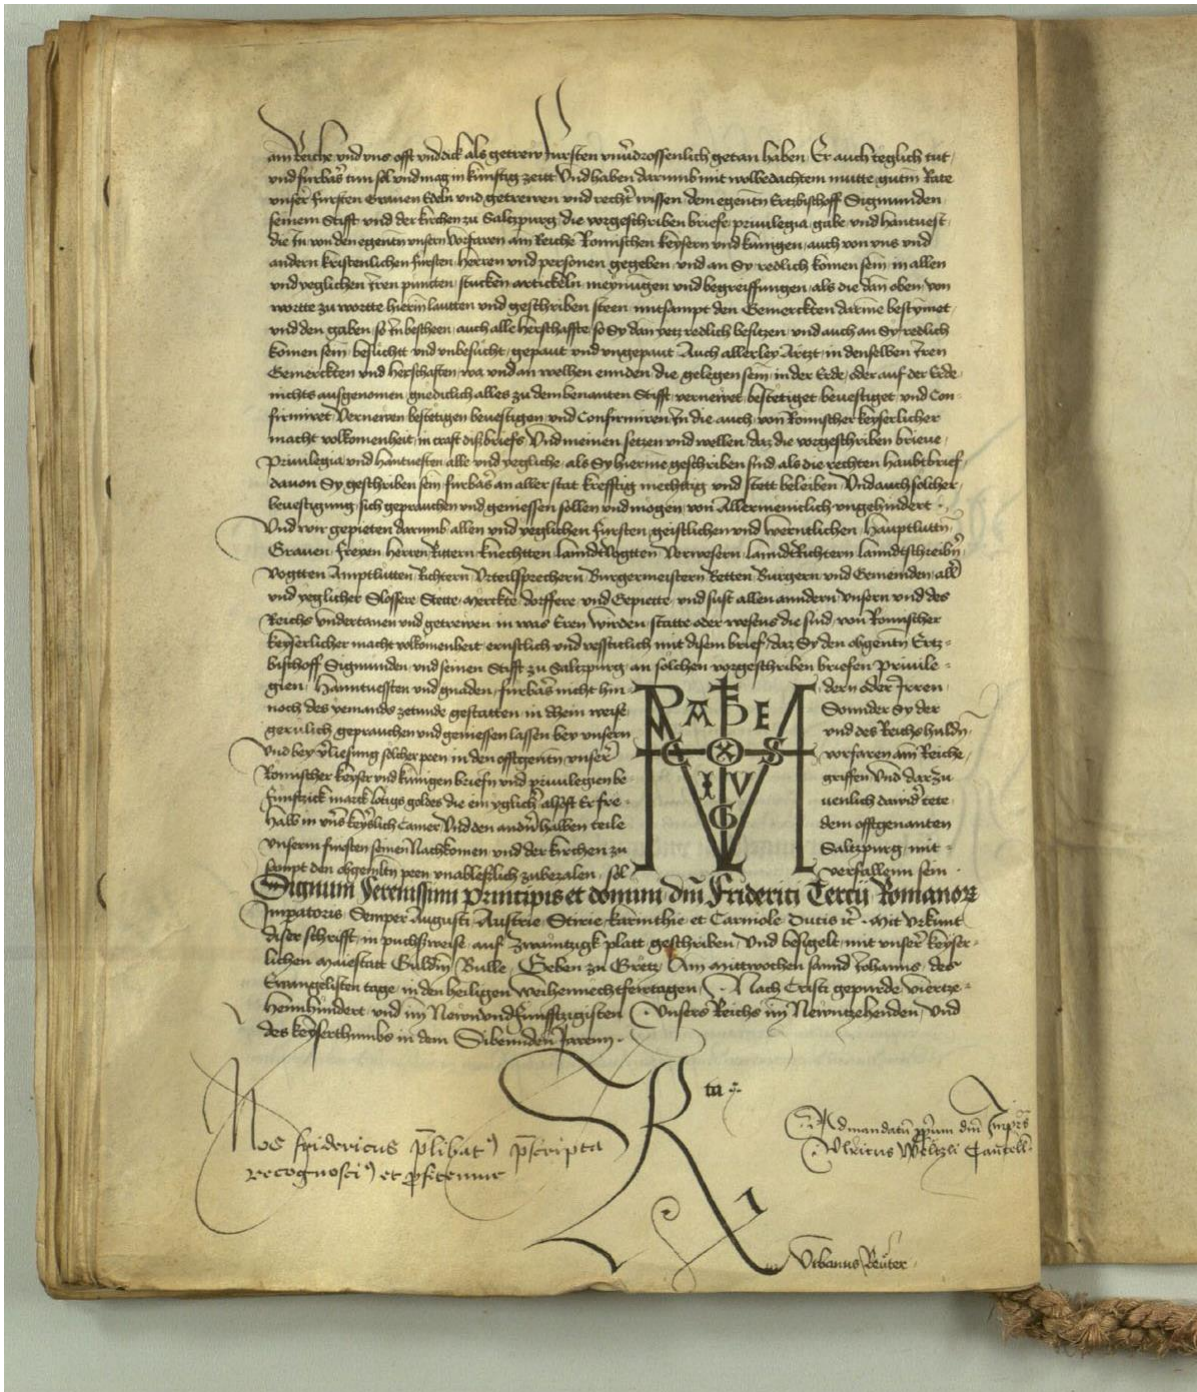 am Reiche vnd vns offt vnd dick als getrew fursten vnuerdrossenlich getan haben Er auch teglich tut,
vnd furbas tun sol vnd mag in kunftig zeitt Vnd haben darumb mit wolbedachtem mutte gutm Rate
vnser fursten Grauen Edeln vnd getrewen vnd recht wissen dem egentn Ertzbischoff Sigmunden
seinem Stifft vnd der kirchen zu Saltzpurg die vorgeschriben briefe priuilegia gabe vnd hantuest
die In von den egentn vnsern Vorfaren am Reiche Romischen keysern vnd kunigen auch von vns vnd
andern kristenlichen fursten Herren vnd personen gegeben vnd an Sy redlich komen sein in allen
vnd yeglichen iren puncten stucken artickeln meynungen vnd begreiffungen als die dan oben von
wortte zu wortte hierin lautten vnd geschriben steen mitsampt den Gemerckten darinne bestymet
vnd den gaben so In bescheen auch alle Herschaffte so Sy dan yetz redlich besitzen vnd auch an Sy redlich
komen sein besucht vnd vnbesucht gepaut vnd vngepaut Auch allerley Artzt in denselben iren
Gemerckten vnd Herschaften wa vnd an welhen ennden die gelegen sein in der Erde oder auf der Erde
nichts ausgenomen gnediclich alles zu dem benanten Stifft vernewet bestetiget beuestiget vnd Con-
firmiret Vernewen bestetigen beuestigen vnd Confirmiren In die auch von Romischer keyserlicher
macht volkomenheit in craft diss briefs Vnd meinen setzen vnd wellen daz die vorgeschriben brieue
Priuilegia vnd hantuesten alle vnd yegliche als Sy hierinne geschriben sind als die rechten haubtbrief
dauon Sy geschriben sein furbas an aller stat krefftig mechttig vnd stett beleiben Vnd auch solcher
beuestigung sich geprauchen vnd geniessen sollen vnd mogen von Allermeniclich vngehindert
Vnd wir gepieten darumb allen vnd yeglichen fursten geistlichen vnd werntlichen Hauptlutn
Grauen freyen Herren Rittern knechtten lanndtVogtten Verwesern lanndtRichtern lanndtschreibn
Vogtten Amptlutten Richtern Vrteilsprechern Burgermeistern Retten Burgern vnd Gemeinden all
vnd yeglicher Slossere Stette Merckte dorffere vnd Gepiette vnd sust allen anndern vnsern vnd des
Reichs vndertanen vnd getrewen in was Eren wirden statte oder wesens die sind von Romischer
keyserlicher macht volkomenheit ernstlich vnd vessticlich mit disem brief daz Sy den obgentn Ertz-
bischoff Sigmunden vnd seinen Stifft zu Saltzpurg an solchen vorgeschriben briefen Priuile-
gien Hanntuessten vnd gnaden furbas nicht hin dern oder Irren
noch des yemands zetunde gestatten in dhein weise Sounder Sy der
gerulich geprauchen vnd geniessen lassen bey vnsern vnd des Reichs hulden
Vnd bey vliesung solcher peen in den offtgentn vnser vorfaren am Reiche
Romischer keyser vnd kunigen briefn vnd priuilegien be griffen Vnd darzu
funftzick marck lotigs goldes die ein yglich alsofft Er fre uenlich dawid tete
Halb in vns keyslich Camer Vnd den andn halben teile dem offtgenanten
vnserm fursten seinen Nachkomen vnd der kirchen zu Saltzpurg mit
sampt den obgemltn peen vnableslich zubezalen sol verfallenn sein
Signum Serenissimi Principis et domini dni Friderici Tercij Romanor
Impatoris Semper Augusti Austrie Stirie karinthie et Carniole Ducis ic Mit Vrkunt
diser schrifft in puchssweise auf zwaintzigk platt geschriben Vnd besigelt mit vnser keyser-
lichen Maiestatt Guldin Bulle Geben zu Gretz Am Mittwochen sannd Johanns des
Ewangelisten tage in den heiligen Weihennechtfeirtagen Nach Cristi gepurde viertze-
Hennhundert vnd im Newnvndfunfftzigisten Vnsers Reichs im Newntzehenden Vnd
des keyserthumbs in dem Sibennden Jarenn
Nos fridericus plibat pscripta
recognosci et pfitemur
Rta
Ad mandatu ppium dni Impris
Vlricus Weltzli Cancell
Vrbanus Reuter